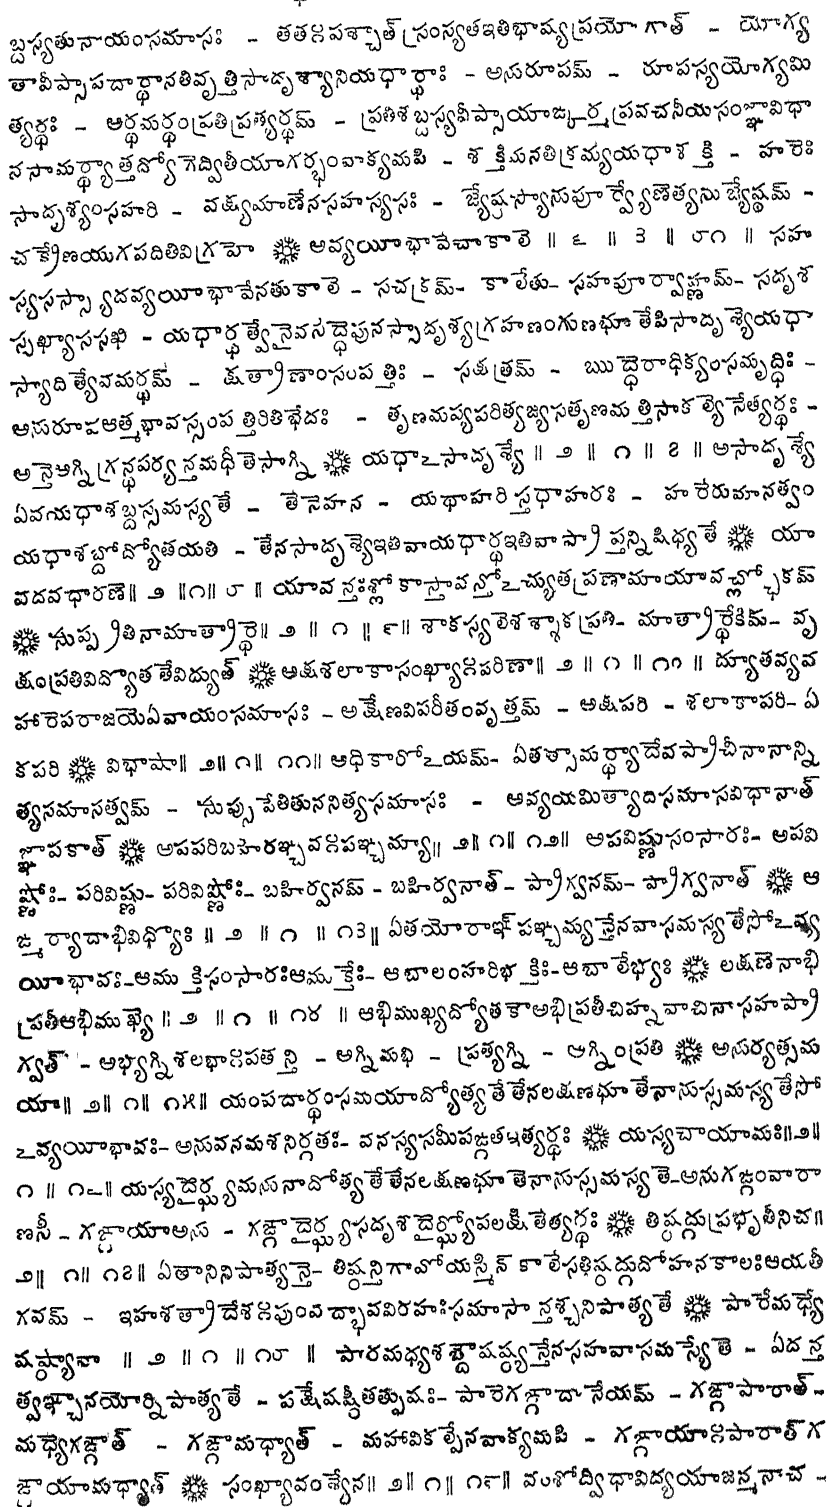 బ్దస్యతునాయంసమాసః - తతఃపశ్చాత్ స్రంస్యతఇతిభాష్యప్రయోగాత్ - యోగ్య
తావీప్సాపదార్థానతివృత్తిసాదృశ్యానియథార్థాః - అనురూపమ్ - రూపస్యయోగ్యమి
త్యర్థః - అర్థమర్థంప్రతిప్రత్యర్థమ్ - ప్రతిశబ్దస్యవీప్సాయాఙ్కర్మప్రవచనీయసంజ్ఞావిధా
నసామర్థ్యాత్తద్యోగేద్వితీయాగర్భంవాక్యమపి - శక్తిమనతిక్రమ్యయథాశక్తి - హరేః
సాదృశ్యంసహరి - వక్ష్యమాణేనసహస్యసః - జ్యేష్ఠస్యానుపూర్వ్యేణేత్యనుజ్యేష్ఠమ్ -
చక్రేణయుగపదితివిగ్రహే ❋ అవ్యయీభావేచాకాలే ॥ ౬ ॥ ౩ ॥ ౮౧ ॥ సహ
స్యసస్స్యాదవ్యయీభావేనతుకాలే - సచక్రమ్- కాలేతు- సహపూర్వాహ్ణమ్- సదృశ
స్సఖ్యాససఖి - యథార్థత్వేనైవసిద్ధేపునస్సాదృశ్యగ్రహణంగుణభూతేపిసాదృశ్యేయథా
స్యాదిత్యేవమర్థమ్ - క్షత్రాణాంసంపత్తిః - సక్షత్రమ్ - ఋద్ధేరాధిక్యంసమృద్ధిః -
అనురూపఆత్మభావస్సంపత్తిరితిభేదః - తృణమప్యపరిత్యజ్యసతృణమత్తిసాకల్యేనేత్యర్థః -
అన్తేఅగ్నిగ్రన్థపర్యన్తమధీతేసాగ్ని ❋ యథాఽసాదృశ్యే ॥ ౨ ॥ ౧ ॥ ౭ ॥ అసాదృశ్యే
ఏవయథాశబ్దస్సమస్యతే - తేనేహన - యథాహరిస్తథాహరః - హరేరుపమానత్వం
యథాశబ్దోద్యోతయతి - తేనసాదృశ్యేఇతివాయథార్థఇతివాప్రాప్తన్నిషిధ్యతే ❋ యా
వదవధారణే॥ ౨ ॥౧॥ ౮ ॥ యావన్తఃశ్లోకాస్తావన్తోఽచ్యుతప్రణామాయావచ్ఛ్లోకమ్
❋ సుప్ప్రతినామాత్రార్థే॥ ౨ ॥ ౧ ॥ ౯॥ శాకస్యలేశశ్శాకప్రతి- మాత్రార్థేకిమ్- వృ
క్షంప్రతివిద్యోతతేవిద్యుత్ ❋ అక్షశలాకాసంఖ్యాఃపరిణా॥ ౨ ॥ ౧ ॥ ౧౦॥ ద్యూతవ్యవ
హారేపరాజయేఏవాయంసమాసః - అక్షేణవిపరీతంవృత్తమ్ - అక్షపరి - శలాకాపరి- ఏ
కపరి ❋ విభాషా॥ ౨॥ ౧॥ ౧౧॥ అధికారోఽయమ్- ఏతత్సామర్థ్యాదేవప్రాచీనానాన్ని
త్యసమాసత్వమ్ - సుప్సుపేతితుననిత్యసమాసః - అవ్యయమిత్యాదిసమాసవిధానాత్
జ్ఞాపకాత్ ❋ అపపరిబహిరఞ్చవఃపఞ్చమ్యా॥ ౨॥ ౧॥ ౧౨॥ అపవిష్ణుసంసారః- అపవి
ష్ణోః- పరివిష్ణు- పరివిష్ణోః- బహిర్వనమ్ - బహిర్వనాత్- ప్రాగ్వనమ్- ప్రాగ్వనాత్ ❋ ఆ
ఙ్మర్యాదాభివిధ్యోః ॥ ౨ ॥ ౧ ॥ ౧౩॥ ఏతయోరాఙ్ పఞ్చమ్యన్తేనవాసమస్యతేసోఽవ్య
యీభావః-ఆముక్తిసంసారఃఆముక్తేః- ఆబాలంహరిభక్తిః-ఆబాలేభ్యః ❋ లక్షణేనాభి
ప్రతీఆభిముఖ్యే॥ ౨ ॥ ౧ ॥ ౧౪ ॥ ఆభిముఖ్యద్యోతకాఅభిప్రతీచిహ్నవాచినాసహప్రా
గ్వత్ - అభ్యగ్నిశలభాఃపతన్తి - అగ్నిమభి - ప్రత్యగ్ని - అగ్నింప్రతి ❋ అనుర్యత్సమ
యా॥ ౨॥ ౧॥ ౧౫॥ యంపదార్థంసమయాద్యోత్యతేతేనలక్షణభూతేనానుస్సమస్యతేసో
ఽవ్యయీభావః- అనువనమశనిర్గతః- వనస్యసమీపఙ్గతఇత్యర్థః ❋ యస్యచాయామః॥౨॥
౧ ॥ ౧౬॥ యస్యదైర్ఘ్యమనునాద్యోత్యతేతేనలక్షణభూతేనానుస్సమస్యతే-అనుగఙ్గంవారా
ణసీ - గఙ్గాయాఅను - గఙ్గాదైర్ఘ్యసదృశదైర్ఘ్యోపలక్షితేత్యర్థః ❋ తిష్ఠద్గుప్రభృతీనిచ॥
౨॥ ౧॥ ౧౭॥ ఏతానినిపాత్యన్తే- తిష్ఠన్తిగావోయస్మిన్ కాలేసతిష్ఠద్గుదోహనకాలఃఆయతీ
గవమ్ - ఇహశత్రాదేశఃపుంవద్భావవిరహఃసమాసాన్తశ్చనిపాత్యతే ❋ పారేమధ్యే
షష్ఠ్యావా ॥ ౨ ॥ ౧ ॥ ౧౮ ॥ పారమధ్యశబ్దౌషష్ఠ్యన్తేనసహవాసమస్యేతే - ఏదన్త
త్వఞ్చానయోర్నిపాత్యతే - పక్షేషష్ఠీతత్పురుషః- పారేగఙ్గాదానేయమ్ - గఙ్గాపారాత్-
మధ్యేగఙ్గాత్ - గఙ్గామధ్యాత్ - మహావికల్పేనవాక్యమపి - గఙ్గాయాఃపారాత్ గ
ఙ్గాయామధ్యాత్ ❋ సంఖ్యావంశ్యేన॥ ౨॥ ౧॥ ౧౯॥ వంశోద్విధావిద్యయాజన్మనాచ -